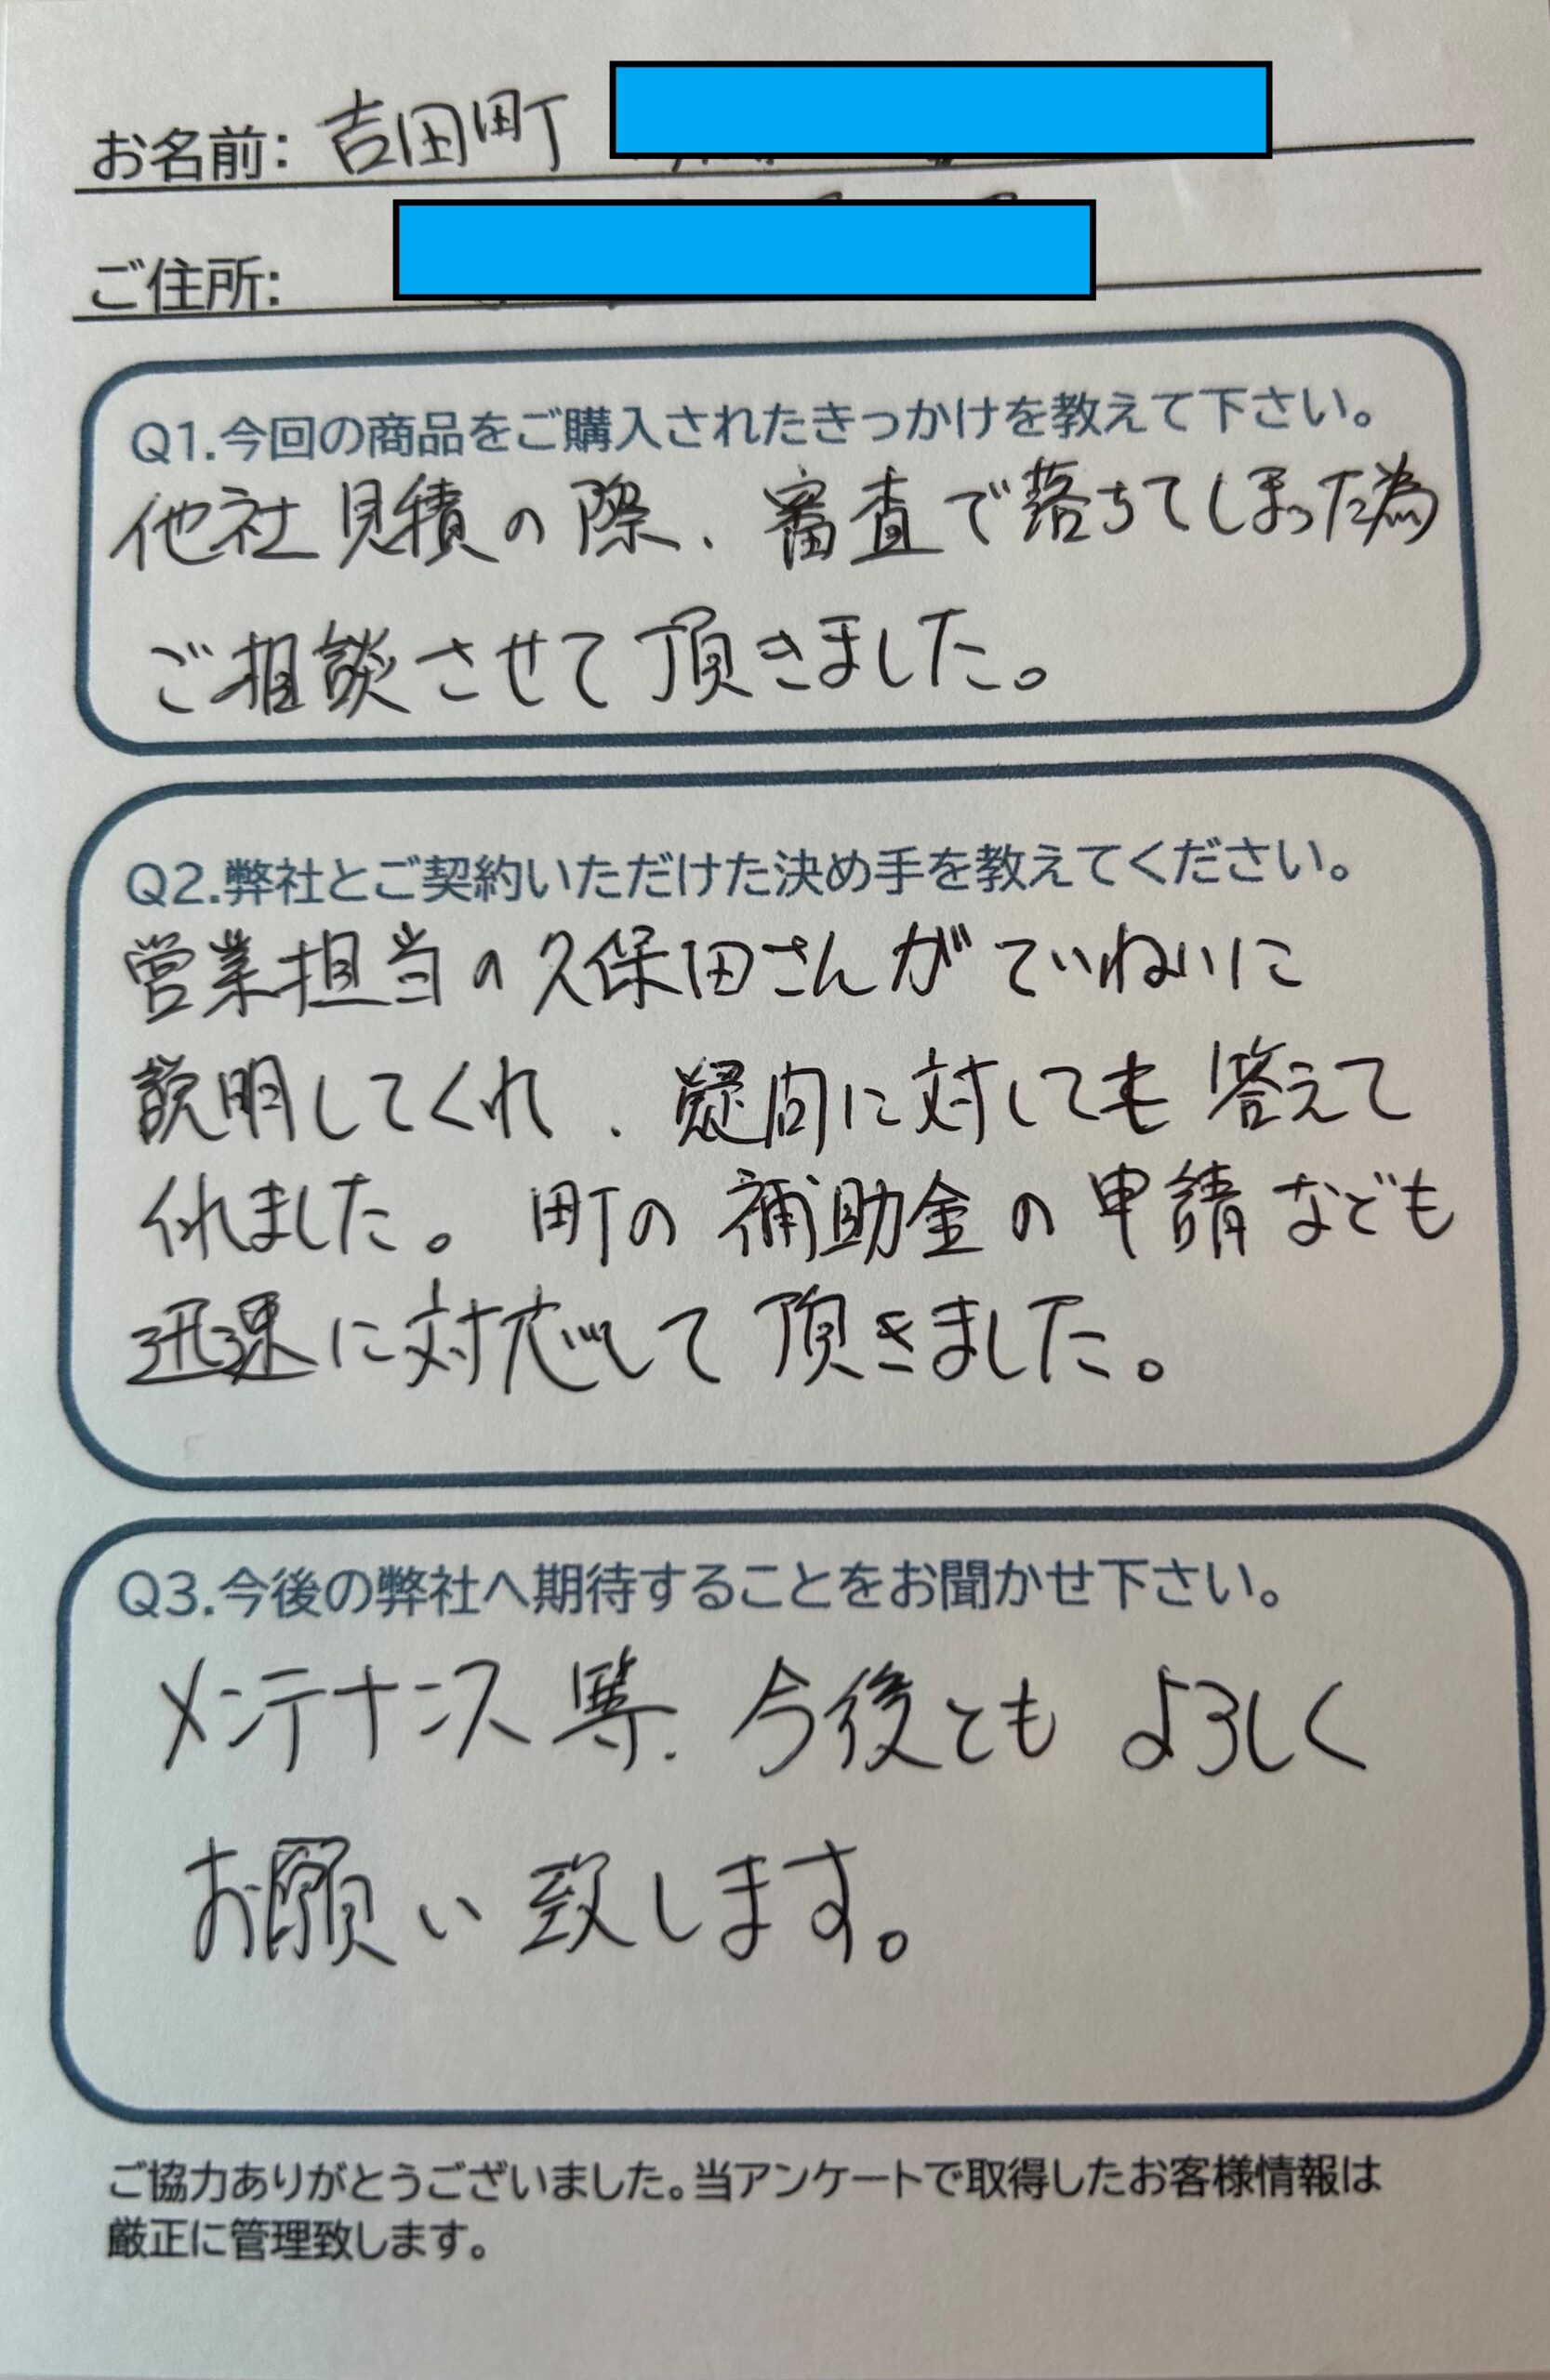 お名前: 吉田町
ご住所:
Q1.今回の商品をご購入されたきっかけを教えて下さい。
他社見積の際、審査で落ちてしまった為
ご相談させて頂きました。
Q2.弊社とご契約いただけた決め手を教えてください。
営業担当の久保田さんがていねいに
説明してくれ、疑問に対しても答えて
くれました。町の補助金の申請なども
迅速に対応して頂きました。
Q3.今後の弊社へ期待することをお聞かせ下さい。
メンテナンス等、今後ともよろしく
お願い致します。
ご協力ありがとうございました。当アンケートで取得したお客様情報は
厳正に管理致します。